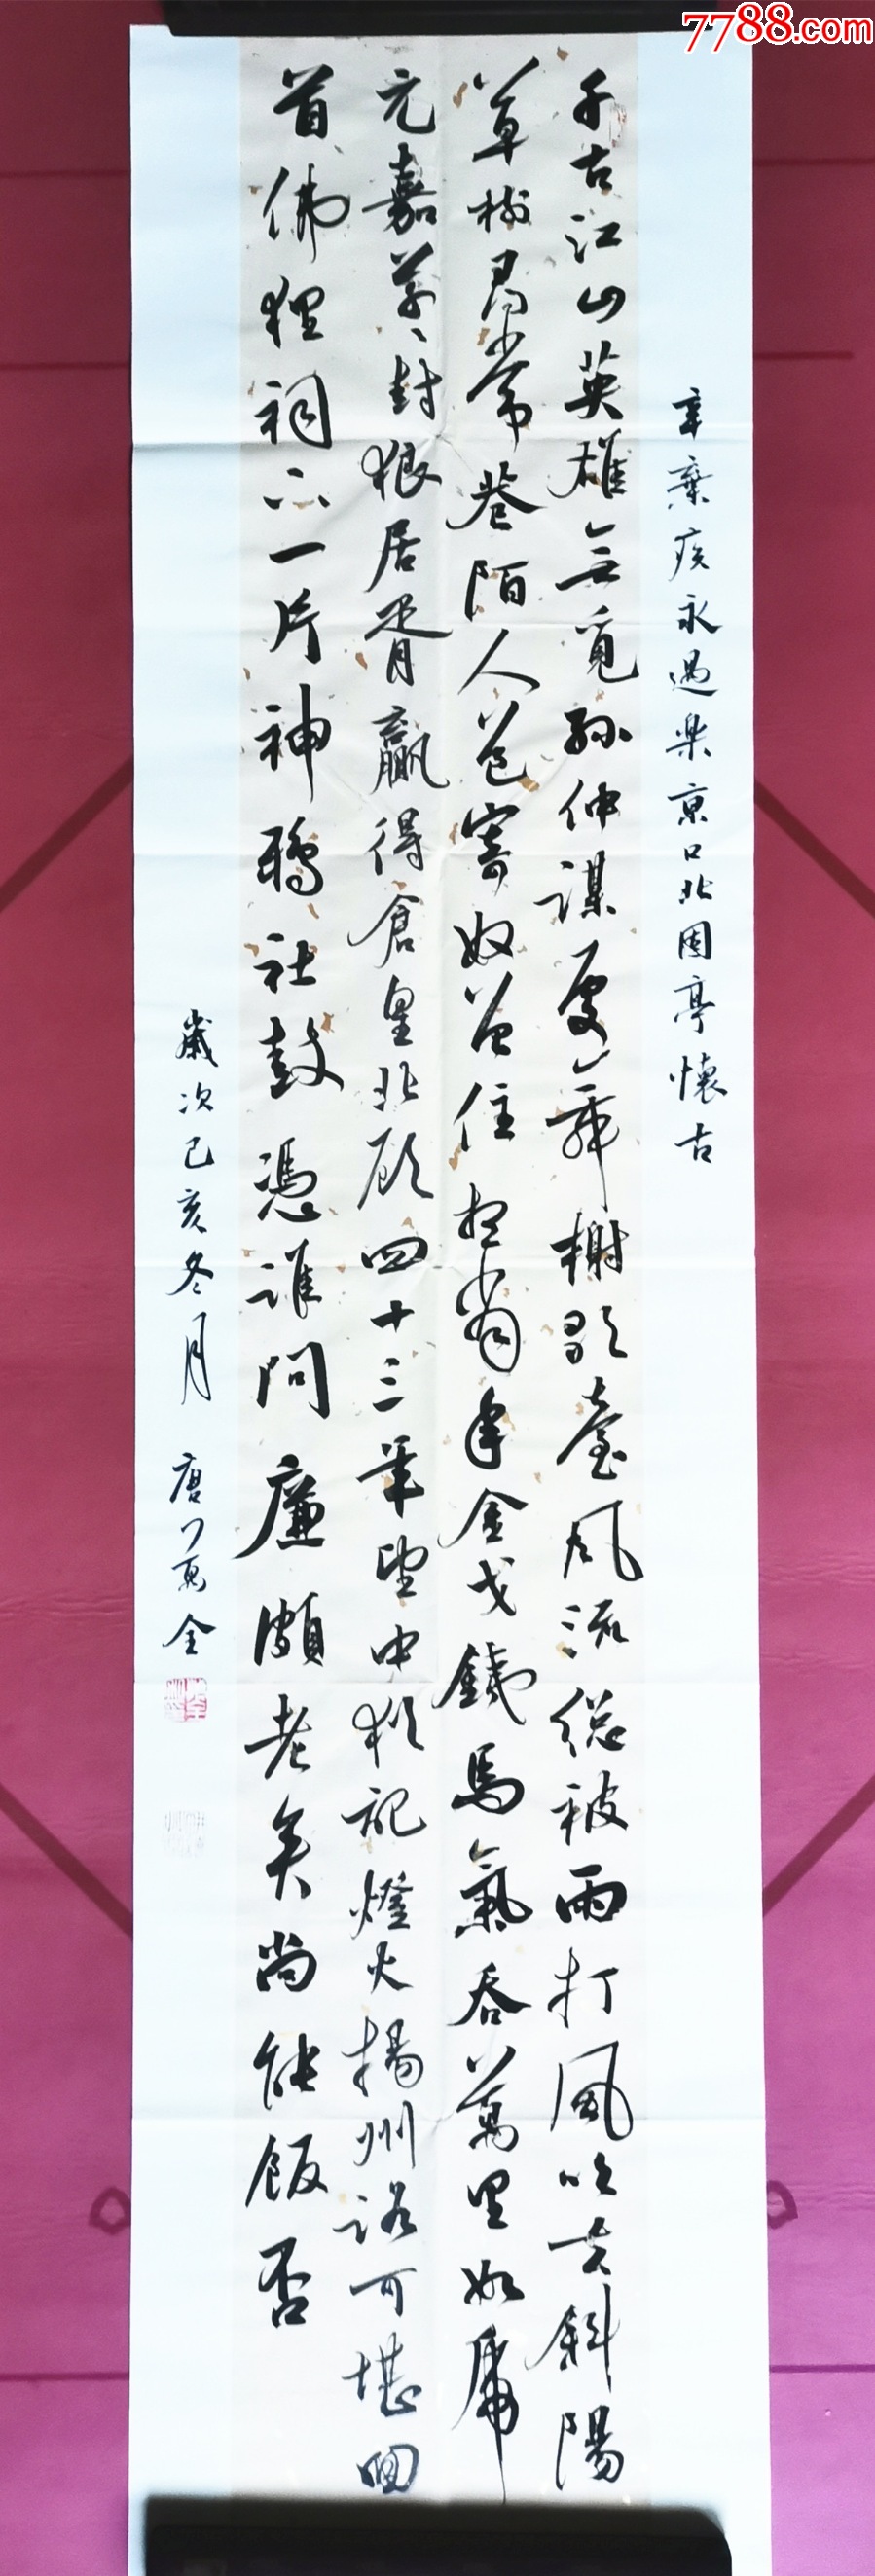 7788.com
辛棄疾永遇樂京口北固亭懷古
千古江山英雄無覓孫仲謀處舞榭歌臺風流總被雨打風吹去斜陽
草樹尋常巷陌人道寄奴曾住想當年金戈鐵馬氣吞萬里如虎
元嘉草〻封狼居胥贏得倉皇北顧四十三年望中猶記燈火揚州路可堪回
首佛狸祠下一片神鴉社鼓憑誰問廉頗老矣尚能飯否
歲次己亥冬月 唐萬全